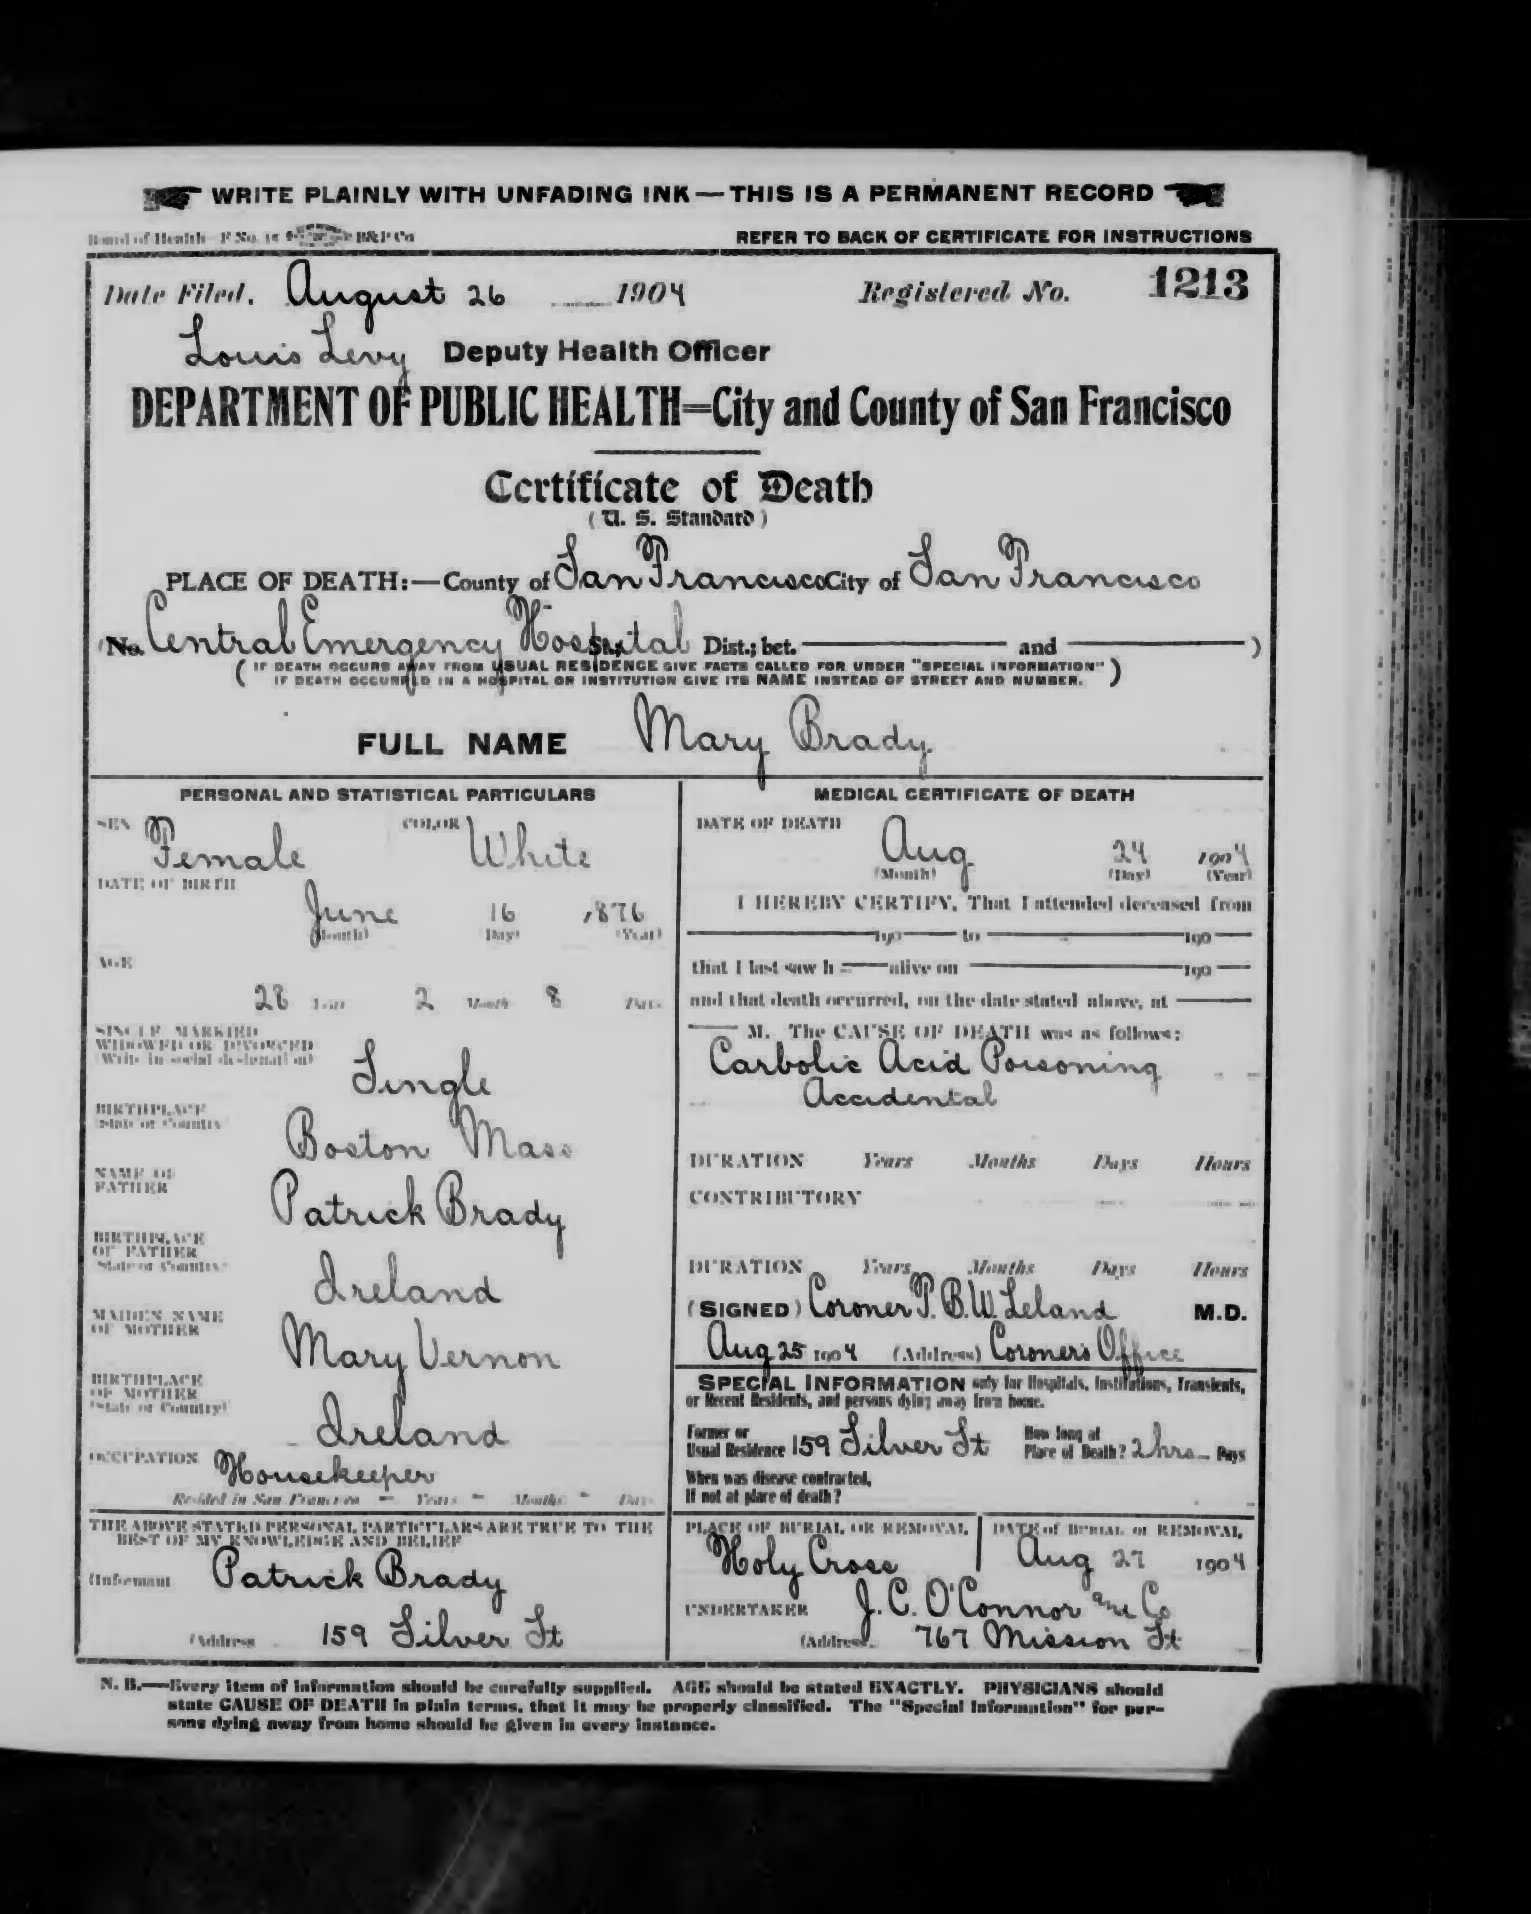 WRITE PLAINLY WITH UNFADING INK — THIS IS A PERMANENT RECORD
Board of Health—F No. 15 B&P Co
REFER TO BACK OF CERTIFICATE FOR INSTRUCTIONS
Date Filed, August 26 1904 Registered No. 1213
Louis Levy Deputy Health Officer
DEPARTMENT OF PUBLIC HEALTH=City and County of San Francisco
Certificate of Death
(U. S. Standard)
PLACE OF DEATH:—County of San Francisco City of San Francisco
(No. Central Emergency Hospital St.; Dist.; bet. ——— and ——— )
( IF DEATH OCCURS AWAY FROM USUAL RESIDENCE GIVE FACTS CALLED FOR UNDER "SPECIAL INFORMATION" )
IF DEATH OCCURRED IN A HOSPITAL OR INSTITUTION GIVE ITS NAME INSTEAD OF STREET AND NUMBER.
FULL NAME Mary Brady
PERSONAL AND STATISTICAL PARTICULARS
SEX Female COLOR White
DATE OF BIRTH
June 16 1876
(Month) (Day) (Year)
AGE
28 Years 2 Months 8 Days
SINGLE MARRIED
WIDOWED OR DIVORCED
(Write in social designation)
Single
BIRTHPLACE
(State or Country)
Boston Mass
NAME OF
FATHER
Patrick Brady
BIRTHPLACE
OF FATHER
(State or Country)
Ireland
MAIDEN NAME
OF MOTHER
Mary Vernon
BIRTHPLACE
OF MOTHER
(State or Country)
Ireland
OCCUPATION Housekeeper
Resided in San Francisco – Years – Months – Days
THE ABOVE STATED PERSONAL PARTICULARS ARE TRUE TO THE
BEST OF MY KNOWLEDGE AND BELIEF
(Informant Patrick Brady
(Address 159 Silver St
MEDICAL CERTIFICATE OF DEATH
DATE OF DEATH
Aug 24 1904
(Month) (Day) (Year)
I HEREBY CERTIFY, That I attended deceased from
——— 190 — to ——— 190 —
that I last saw h — alive on ——— 190 —
and that death occurred, on the date stated above, at ———
—— M. The CAUSE OF DEATH was as follows:
Carbolic Acid Poisoning
Accidental
DURATION Years Months Days Hours
CONTRIBUTORY
DURATION Years Months Days Hours
(SIGNED) Coroner T. B. W. Leland M.D.
Aug 25 1904 (Address) Coroner's Office
SPECIAL INFORMATION only for Hospitals, Institutions, Transients,
or Recent Residents, and persons dying away from home.
Former or
Usual Residence 159 Silver St
How long at
Place of Death? 2 hrs Days
When was disease contracted,
If not at place of death?
PLACE OF BURIAL OR REMOVAL
Holy Cross
DATE of BURIAL or REMOVAL
Aug 27 1904
UNDERTAKER J. C. O'Connor and Co
(Address 767 Mission St
N. B.—Every item of information should be carefully supplied. AGE should be stated EXACTLY. PHYSICIANS should
state CAUSE OF DEATH in plain terms, that it may be properly classified. The "Special Information" for per-
sons dying away from home should be given in every instance.